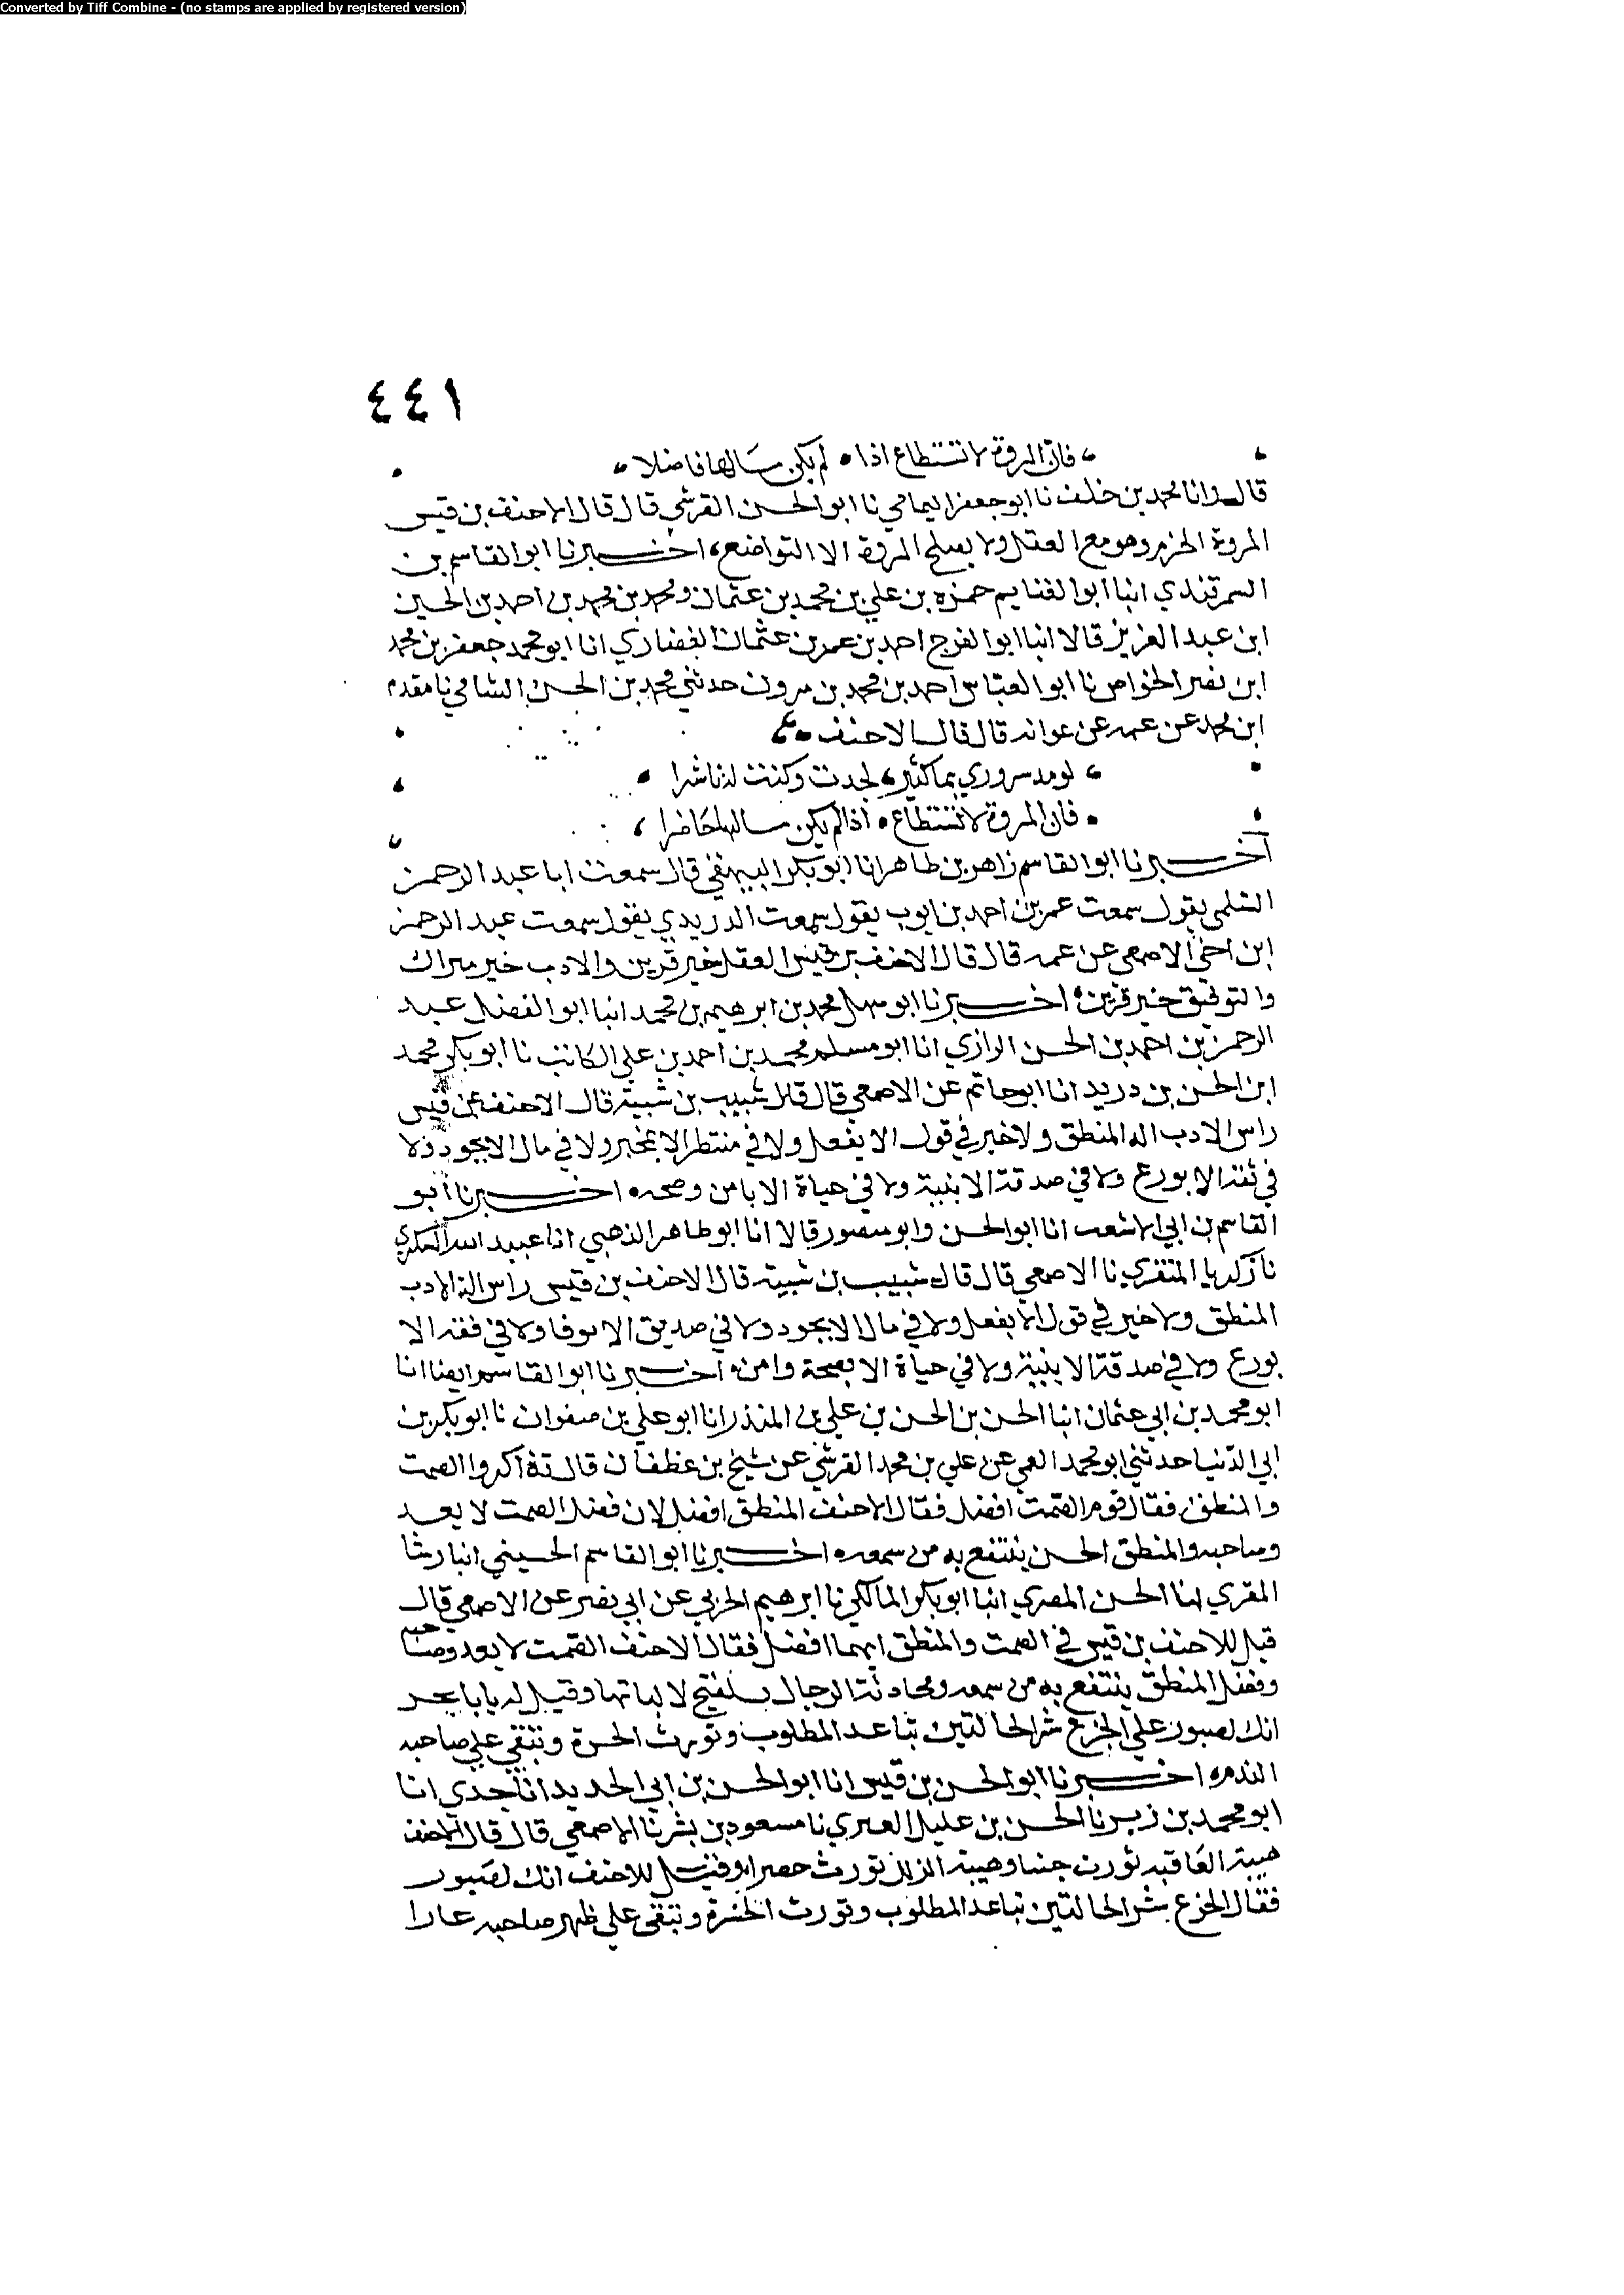 Converted by Tiff Combine - (no stamps are applied by registered version)
٤٤١
فان المروة لا تستطاع اذا لم يكن مالها فاضلا
قال وانا محمد بن خلف نا ابو جعفر اليمامي نا ابو الحسن القرشي قال قال الاحنف بن قيس
المروة الحزم وهو مع العقل ولا يصلح المروة الا التواضع اخبرنا ابو القاسم بن
السمرقندي انبا ابو الغنايم حمزه بن علي بن محمد بن عثمان ومحمد بن محمد بن احمد بن الحسين
ابن عبد العزيز قالا انبا ابو الفرج احمد بن عمر بن عثمان الغضاري انا ابو محمد جعفر بن محمد
ابن نصر الخواص نا ابو العباس احمد بن محمد بن مروق حدثني محمد بن الحسن الشامي نا مقدم
ابن محمد عن عمه عن عوانه قال قال الاحنف
لو مد سروري بما كثير لجدت وكنت له ناشرا
فان المروة لا تستطاع اذا لم يكن مالها حاضرا
اخبرنا ابو القاسم زاهر بن طاهر انا ابو بكر البيهقي قال سمعت ابا عبد الرحمن
السلمي يقول سمعت عمر بن احمد بن ايوب يقول سمعت الدريدي يقول سمعت عبد الرحمن
ابن اخي الاصمعي عن عمه قال قال الاحنف بن قيس العقل خير قرين والادب خير ميراث
والتوفيق خير قرين اخبرنا ابو سهل محمد بن ابرهيم بن محمد انبا ابو الفضل عبد
الرحمن بن احمد بن الحسن الرازي انا ابو مسلم محمد بن احمد بن علي الكاتب نا ابو بكر محمد
ابن الحسن بن دريد انا ابو حاتم عن الاصمعي قال قال شبيب بن شيبة قال الاحنف بن قيس
راس الادب اله المنطق ولا خير في قول الا بفعل ولا في منتظر الا بمخبر ولا في مال الا بجود ولا
في ثقه الا بورع ولا في صدقة الا بنية ولا في حياة الا بامن وصحه اخبرنا ابو
القاسم بن ابي الاشعث انا ابو الحسن وابو منصور قالا انا ابو طاهر الذهبي انا عبيد الله السكري
نا زكريا المنقري نا الاصمعي قال قال شبيب بن شيبة قال الاحنف بن قيس راس الة الادب
المنطق ولا خير في قول الا بفعل ولا في مال الا بجود ولا في صديق الا بوفا ولا في فقه الا
بورع ولا في صدقة الا بنية ولا في حياة الا بصحة وامن اخبرنا ابو القاسم ايضا انا
ابو محمد بن ابي عثمان انبا الحسن بن الحسن بن علي بن المنذر انا ابو علي بن صفوان نا ابو بكر بن
ابي الدنيا حدثني ابو محمد العمي عن علي بن محمد القرشي عن شيخ بن غطفان قال تذاكروا الصمت
والمنطق فقال قوم الصمت افضل فقال الاحنف المنطق افضل لان فضل الصمت لا يعد
وصاحبه والمنطق الحسن ينتفع به من سمعه اخبرنا ابو القاسم الحسيني انبا رشا
المقري انا الحسن المصري انبا ابو بكر المالكي نا ابرهيم الحربي عن ابي نصر عن الاصمعي قال
قيل للاحنف بن قيس في الصمت والمنطق ايهما افضل فقال الاحنف الصمت لا يعدو صاحبه
وفضل المنطق ينتفع به من سمعه ومحادثة الرجال تلقيح لالبابها وقيل له يا با بحر
انك لصبور علي الجزع شر الحالتين تباعد المطلوب وتورث الحسرة وتبقي علي صاحبه
الندم اخبرنا ابو الحسن بن قيس انا ابو الحسن بن ابي الحديد انا جدي انا
ابو محمد بن زبر نا الحسن بن عليل العنزي نا مسعود بن بشر نا الاصمعي قال قال الاحنف
هيبة العاقبه تورث جبنا وهيبة الزلل تورث حصرا وقيل للاحنف انك لصبور
فقال الجزع شر الحالتين تباعد المطلوب وتورث الحسرة وتبقي علي ظهر صاحبه عارا